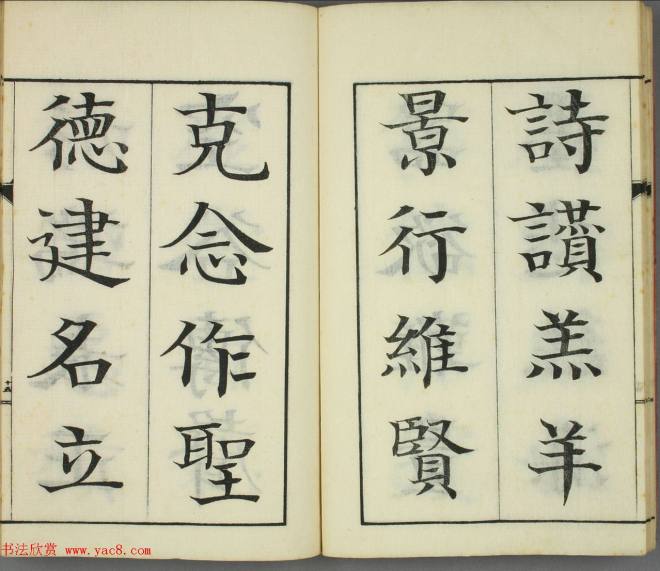 詩讃羔羊
景行維賢
克念作聖
德建名立
十五
书法欣赏 www.yac8.com